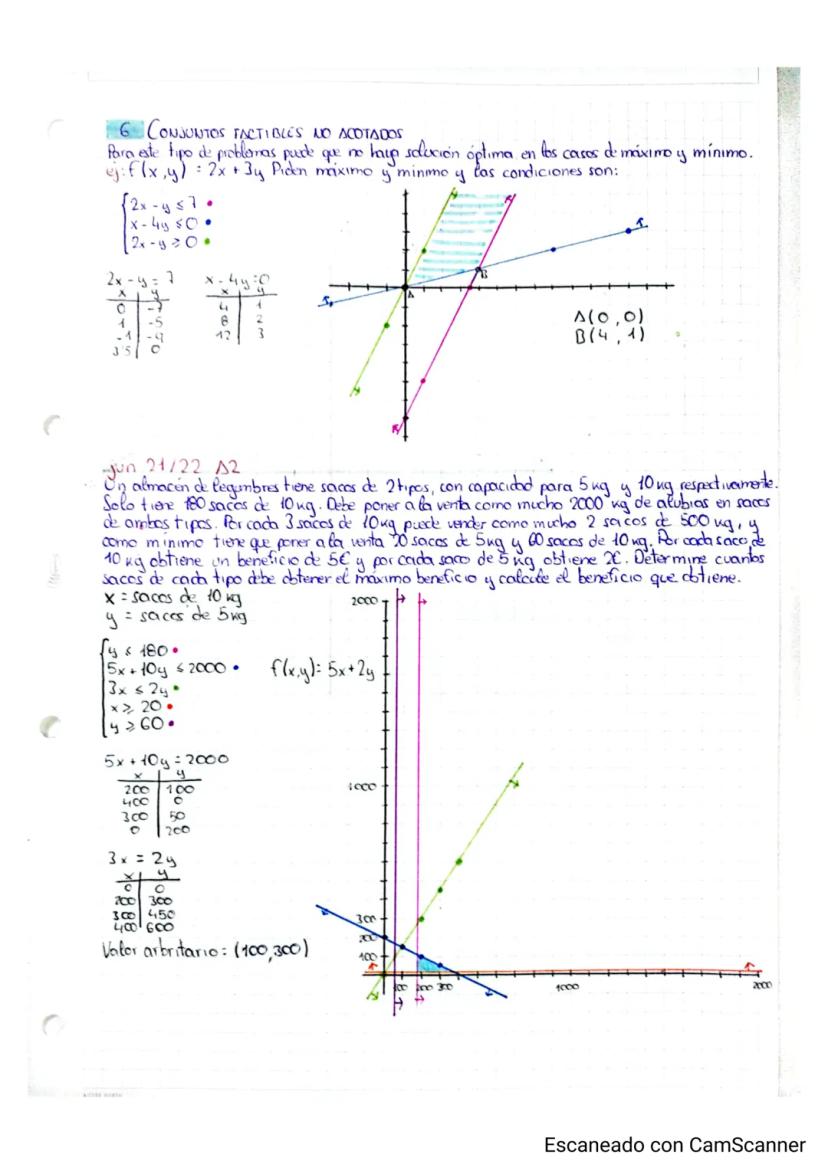 6 CONJUNTOS FACTIBLES NO ACOTADOS
Para este tipo de problemas puede que no haya solución óptima en los casos de máximo y mínimo.
ej: f(x,y) = 2x + 3y Piden máximo y mínimo y las condiciones son:
2x - y ≤ 7
x - 4y ≤ 0
2x - y ≥ 0
2x - y = 7 x - 4y = 0
x y x y
0 -7 4 1
1 -5 8 2
-1 -9 12 3
3'5 0
A
B
A(0,0)
B(4,1)
jun 21/22 A2
Un almacén de legumbres tiene sacos de 2 tipos, con capacidad para 5 kg y 10 kg respectivamente.
Solo tiene 180 sacos de 10 kg. Debe poner a la venta como mucho 2000 kg de alubias en sacos
de ambos tipos. Por cada 3 sacos de 10 kg puede vender como mucho 2 sacos de 500 kg, y
como mínimo tiene que poner a la venta 20 sacos de 5 kg y 60 sacos de 10 kg. Por cada saco de
10 kg obtiene un beneficio de 5€ y por cada saco de 5 kg obtiene 2€. Determine cuantos
sacos de cada tipo debe obtener el máximo beneficio y calcule el beneficio que obtiene.
x = sacos de 10 kg
y = sacos de 5kg
y ≤ 180
5x + 10y ≤ 2000 f(x,y): 5x + 2y
3x ≤ 2y
x ≥ 20
y ≥ 60
5x + 10y = 2000
x y
200 100
400 0
300 50
0 200
3x = 2y
x y
0 0
200 300
300 450
400 600
Valor arbritario: (100,300)
2000
1000
300
200
100
100 200 300 1000 2000
Escaneado con CamScanner